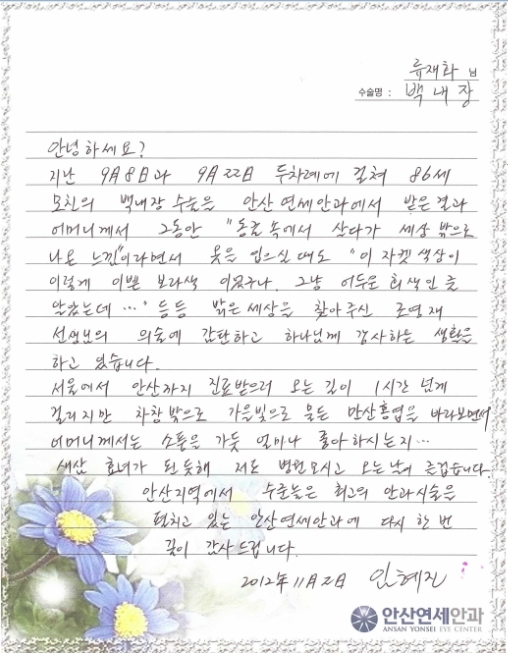 류재화 님
수술명 : 백내장
안녕하세요?
지난 9월 8일과 9월 22일 두차례에 걸쳐 86세
모친의 백내장 수술을 안산연세안과에서 받은 결과
어머니께서 그동안 "동굴 속에서 살다가 세상 밖으로
나온 느낌"이라면서 옷을 입으실 때도 "이 자켓 색상이
이렇게 이쁜 보라색 이었구나. 그냥 어두운 회색인 줄
알았는데…" 등등 밝은 세상을 찾아주신 조영재
선생님의 의술에 감탄하고 하나님께 감사하는 생활을
하고 있습니다.
서울에서 안산까지 진료받으러 오는 길이 1시간 넘게
걸리지만 차창 밖으로 가을빛으로 물든 만산홍엽을 바라보면서
어머니께서는 소풍을 가듯 얼마나 좋아하시는지…
새삼 효녀가 된 듯해 저도 병원 모시고 오는 날이 즐겁습니다.
안산지역에서 수준높은 최고의 안과시술을
펼치고 있는 안산연세안과에 다시 한 번
깊이 감사드립니다.
2012年 11月 2日 임혜진
안산연세안과
ANSAN YONSEI EYE CENTER